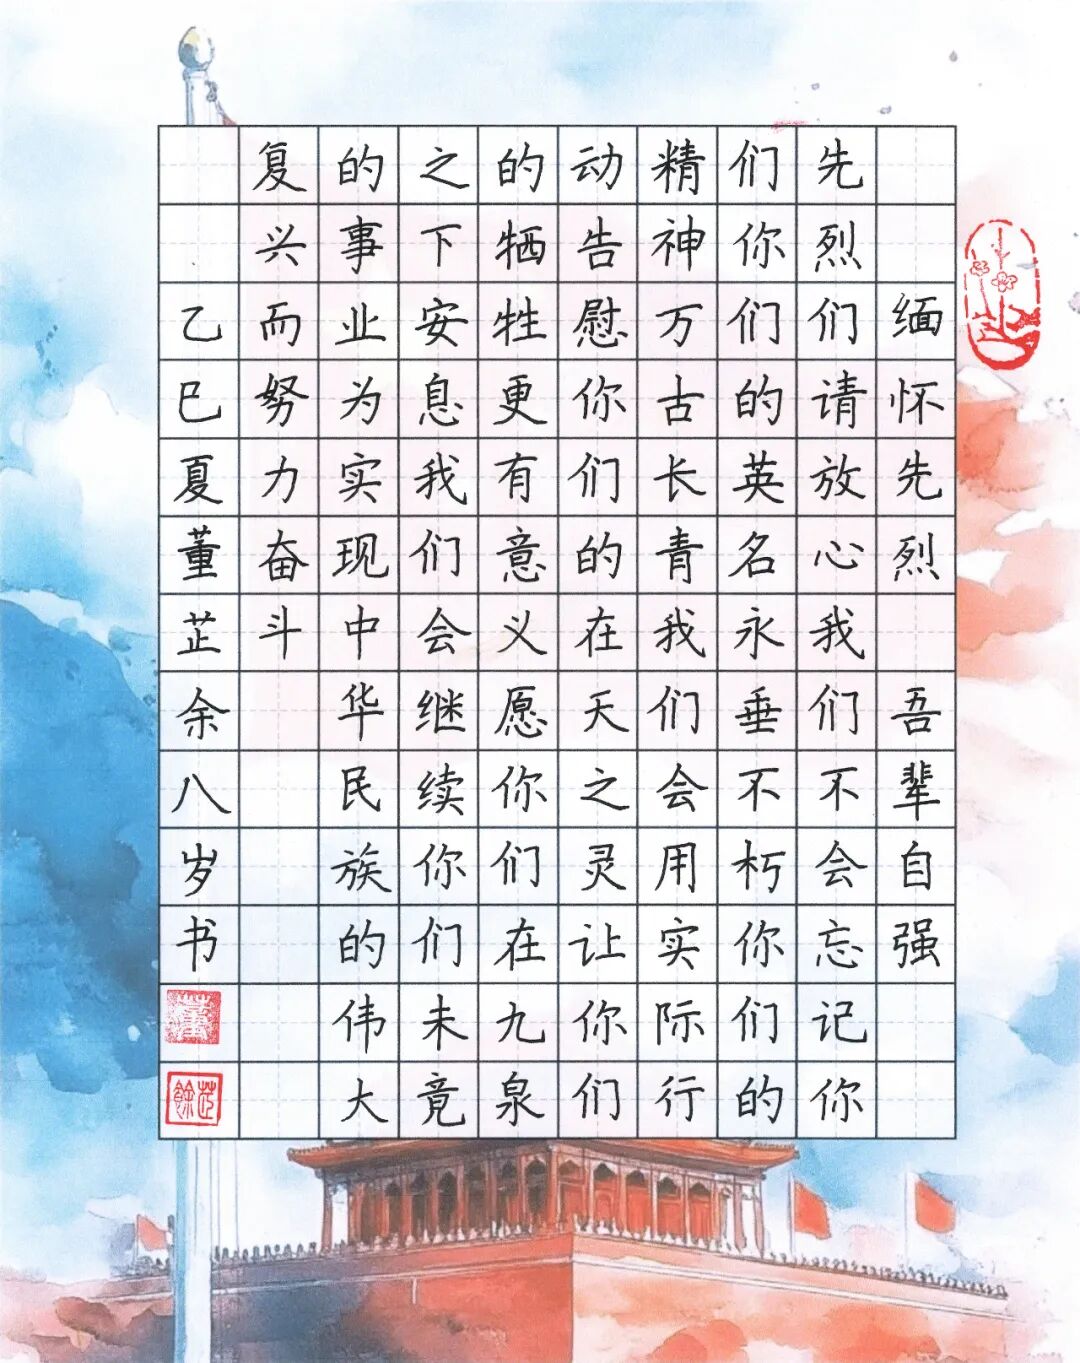 缅怀先烈 吾辈自强
先烈们请放心我们不会忘记你
们你们的英名永垂不朽你们的
精神万古长青我们会用实际行
动告慰你们的在天之灵让你们
的牺牲更有意义愿你们在九泉
之下安息我们会继续你们未竟
的事业为实现中华民族的伟大
复兴而努力奋斗
乙巳夏董芷余八岁书
董
芷餘